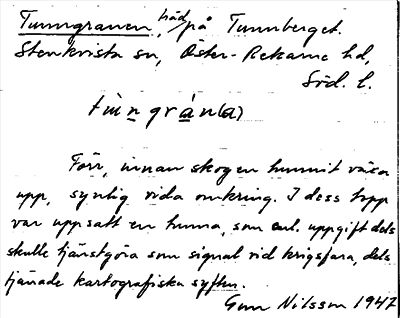 Tunngranen, träd på Tunnberget.
Stenkvista sn, Öster-Rekarne hd,
Söd. l.
Förr, innan skogen hunnit växa
upp, synlig vida omkring. I dess topp
var uppsatt en tunna, som enl. uppgift dels
skulle tjänstgöra som signal vid krigsfara, dels
tjänade kartografiska syften.
Gun Nilsson 1947